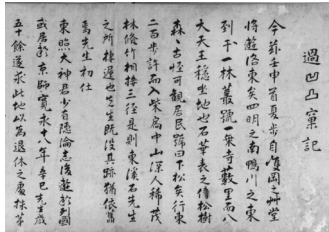 過凹凸窠記
今茲壬申首夏步自岡之艸堂
将遊洛東矣四明之南鴨川之東
到于一林叢號一乗寺藪里而八
大天王穏坐地也石華表之傍松樹
森々古怪可観居民號曰下松矣行東
二百歩許而入柴扃中山深人稀茂
林脩竹相接三径是則東溪石先生
之所棲遅也先生既没其跡猶依舊
焉先生初仕
東照大神君少自隠淪志後遊於列國
或居於京師寛永十八年辛巳先生歳
五十餘遂求此地以為退休之處茅